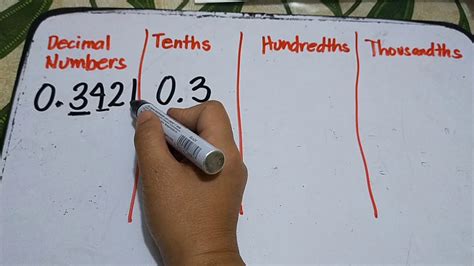 Decimal Numbers
Tenths
Hundredths
Thousandths
0.3421
0.3